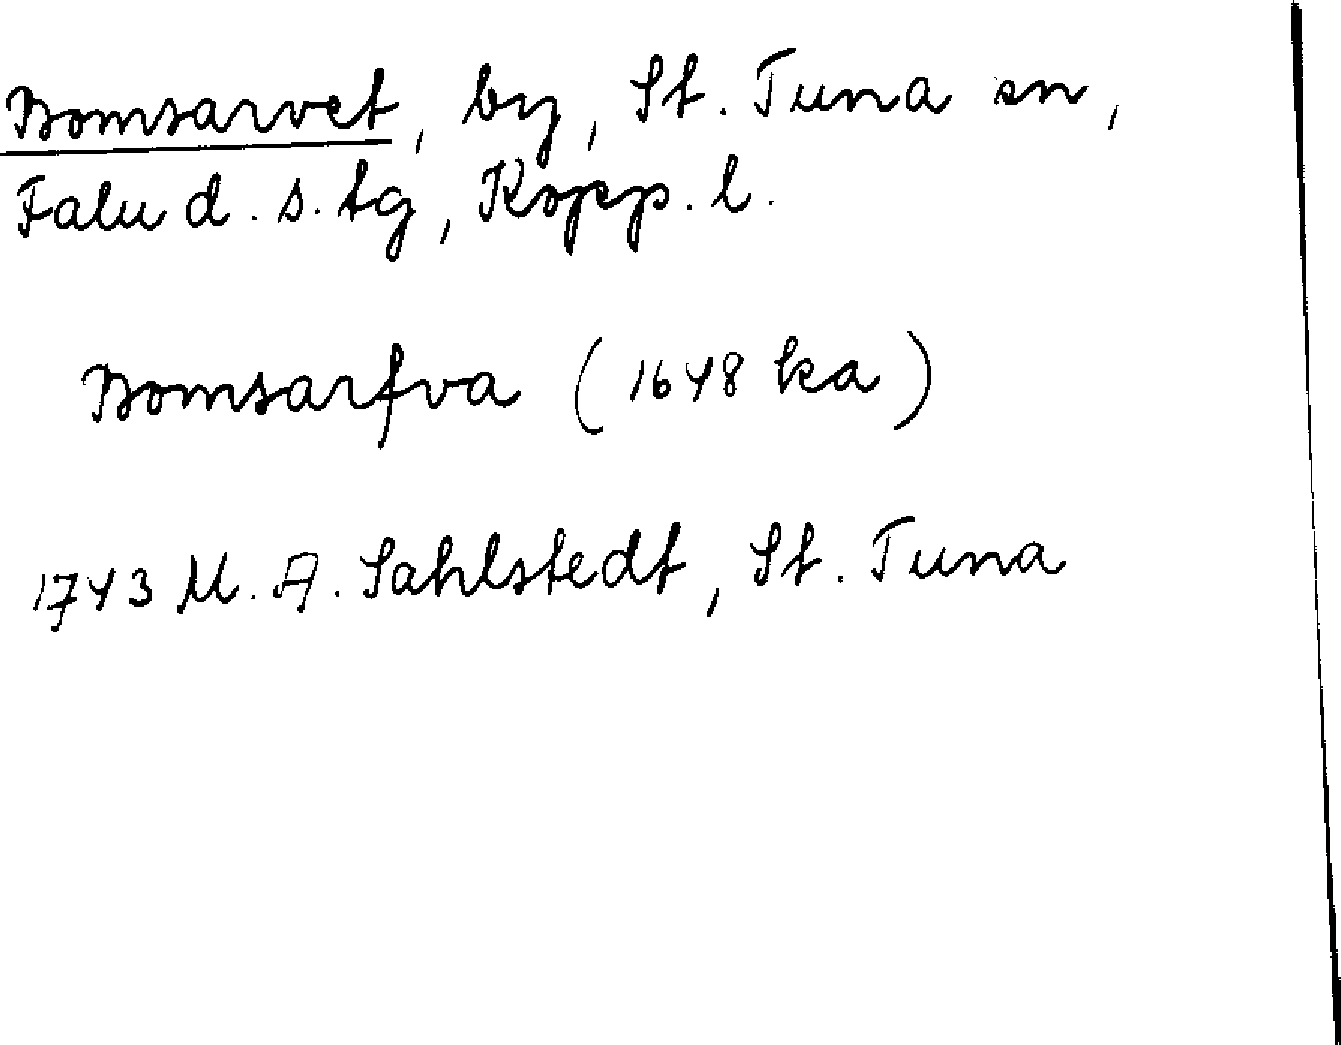 Bomsarvet, by, St. Tuna sn,
Falu d. s. tg, Kopp. l.
Bomsarfva (1648 ka)
1743 M. A. Sahlstedt, St. Tuna